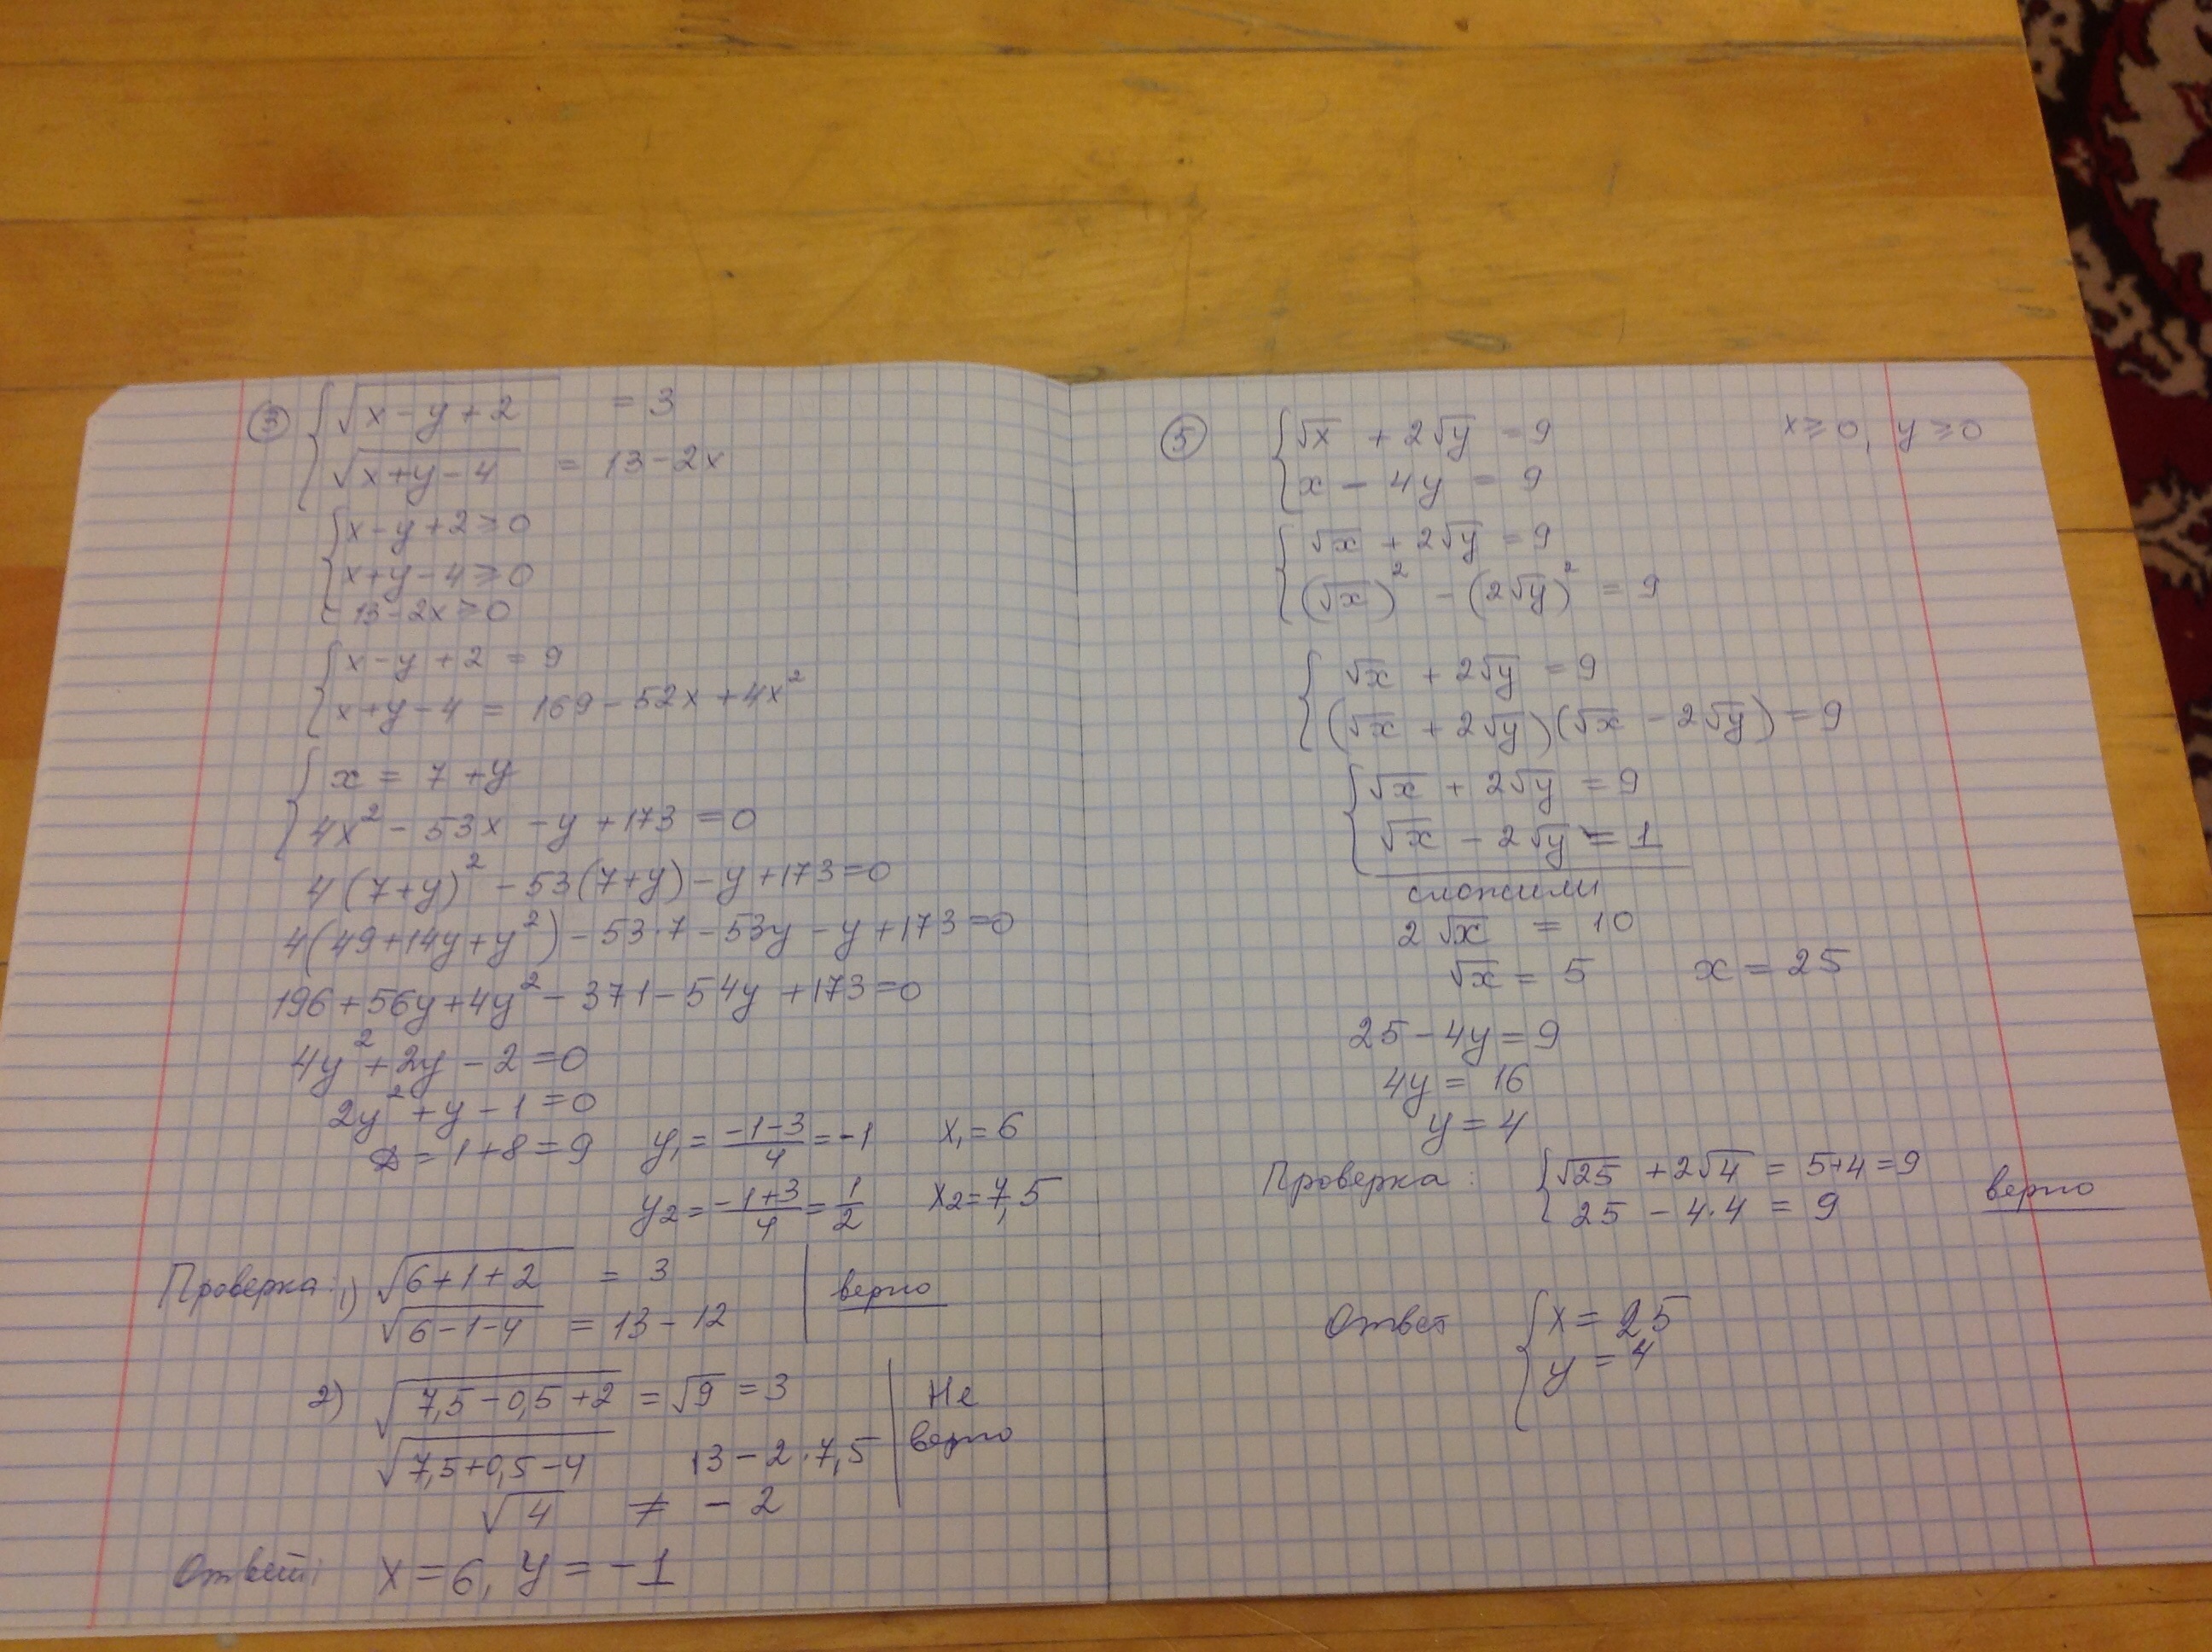 ③ { √(x-y+2) = 3
√(x+y-4) = 13-2x
{ x-y+2≥0
x+y-4≥0
13-2x≥0
{ x-y+2 = 9
x+y-4 = 169-52x+4x²
{ x = 7+y
4x²-53x-y+173=0
4(7+y)²-53(7+y)-y+173=0
4(49+14y+y²)-53·7-53y-y+173=0
196+56y+4y²-371-54y+173=0
4y²+2y-2=0
2y²+y-1=0
D=1+8=9 y₁=(-1-3)/4=-1 x₁=6
y₂=(-1+3)/4=1/2 x₂=7,5
Проверка: 1) √(6+1+2) = 3
√(6-1-4) = 13-12 верно
2) √(7,5-0,5+2) = √9 = 3 Не
√(7,5+0,5-4) 13-2·7,5 верно
√4 ≠ -2
Ответ: x=6, y=-1
⑤ { √x + 2√y = 9 x≥0, y≥0
x - 4y = 9
{ √x + 2√y = 9
(√x)² - (2√y)² = 9
{ √x + 2√y = 9
(√x + 2√y)(√x - 2√y) = 9
{ √x + 2√y = 9
√x - 2√y = 1
сложили
2√x = 10
√x = 5 x = 25
25-4y=9
4y = 16
y = 4
Проверка: { √25 + 2√4 = 5+4=9
25 - 4·4 = 9 верно
Ответ { x = 25
y = 4